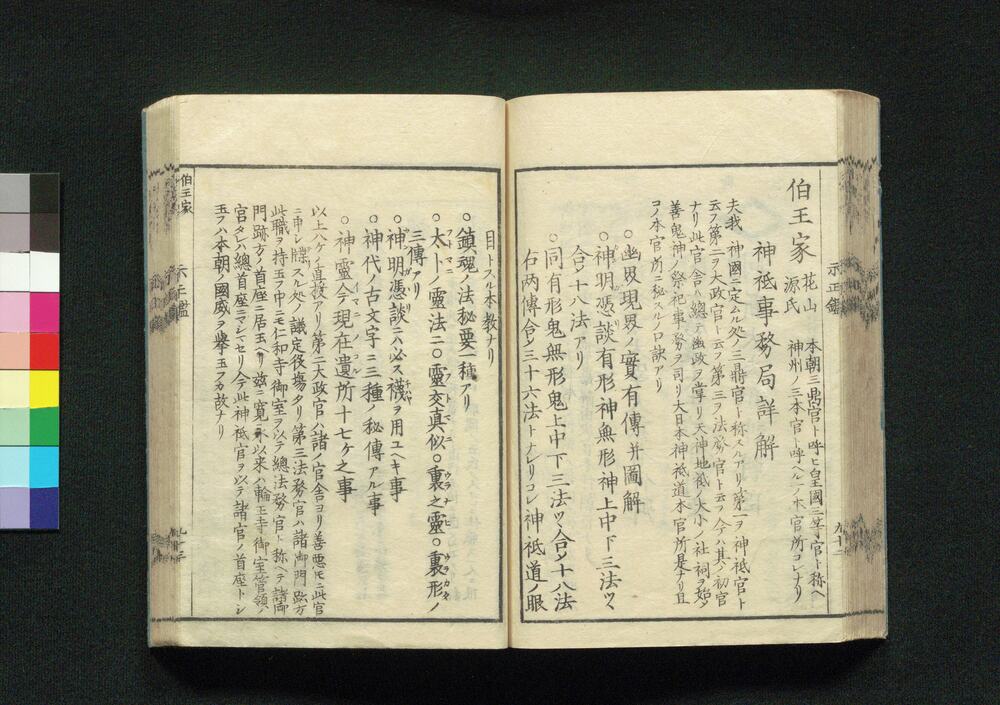 示正鑑
九十二
伯王家 花山 源氏 本朝三鼎官ト呼ヒ皇國三等官ト称ヘ
神州ノ三本官ト呼ヘル一ノ本官所コレナリ
神祗事務局詳解
夫我 神國ニ定ムル処ノ三鼎官ト称スルアリ第一ヲ神祗官ト
云フ第二ヲ大政官ト云フ第三ヲ法務官ト云フ今ハ其ノ初官
ナリ此官舎ハ總テ幽政ヲ掌リ天神地祗ノ大小ノ社祠ヲ始メ
善鬼神ノ祭祀事務ヲ司リ大日本神祗道本官所是ナリ且
コノ本官所ニ秘スルノ口訣アリ
○幽界現界ノ實有傳并圖解
○神明憑談有形神無形神上中下三法ツヽ
合メ十八法アリ
○同有形鬼無形鬼上中下三法ツヽ合メ十八法
右両傳合メ三十六法トナレリコレ神祗道ノ眼
目トスル本教ナリ
○鎮魂ノ法秘要一種アリ
○太卜ノ靈法ニ○靈交真似○裏之靈○裏形ノ
三傳アリ
○神明憑談ニハ必ス襪ヲ用ユヘキ事
○神代ノ古文字ニ三種ノ秘傳アル事
○神靈今現在遺所十七ケ之事
以上ハケイ直授アリ第二大政官ハ諸ノ官舎ヨリノ善悪モニ此官
ニ申シ牒スル処ノ議定役場タリ第三法務官ハ諸御門跡方
此職ヲ持玉フ中ニモ仁和寺御室ヲ以テ總法務官ト称ヘテ諸御
門跡方ノ首座ニ居玉ヘリ茲ニ寛永以来ハ輪王寺御室管領ノ
官タレハ總首座ニマシマセリ今此神祗官ヲ以テ諸官ノ首座トシ
玉フハ本朝ノ國威ヲ挙玉フカ故ナリ
伯王家
示正鑑
九十三